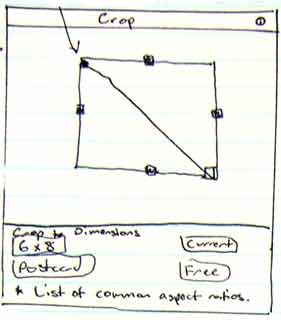 Crop
Crop to Dimensions
6 x 8
Current
Postcard
Free
* List of common aspect ratios.